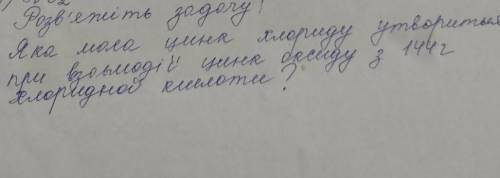 Розв'яжіть задачу!
Яка маса цинк хлориду утвориться
при взаємодії цинк оксиду з 144г
хлоридної кислоти?